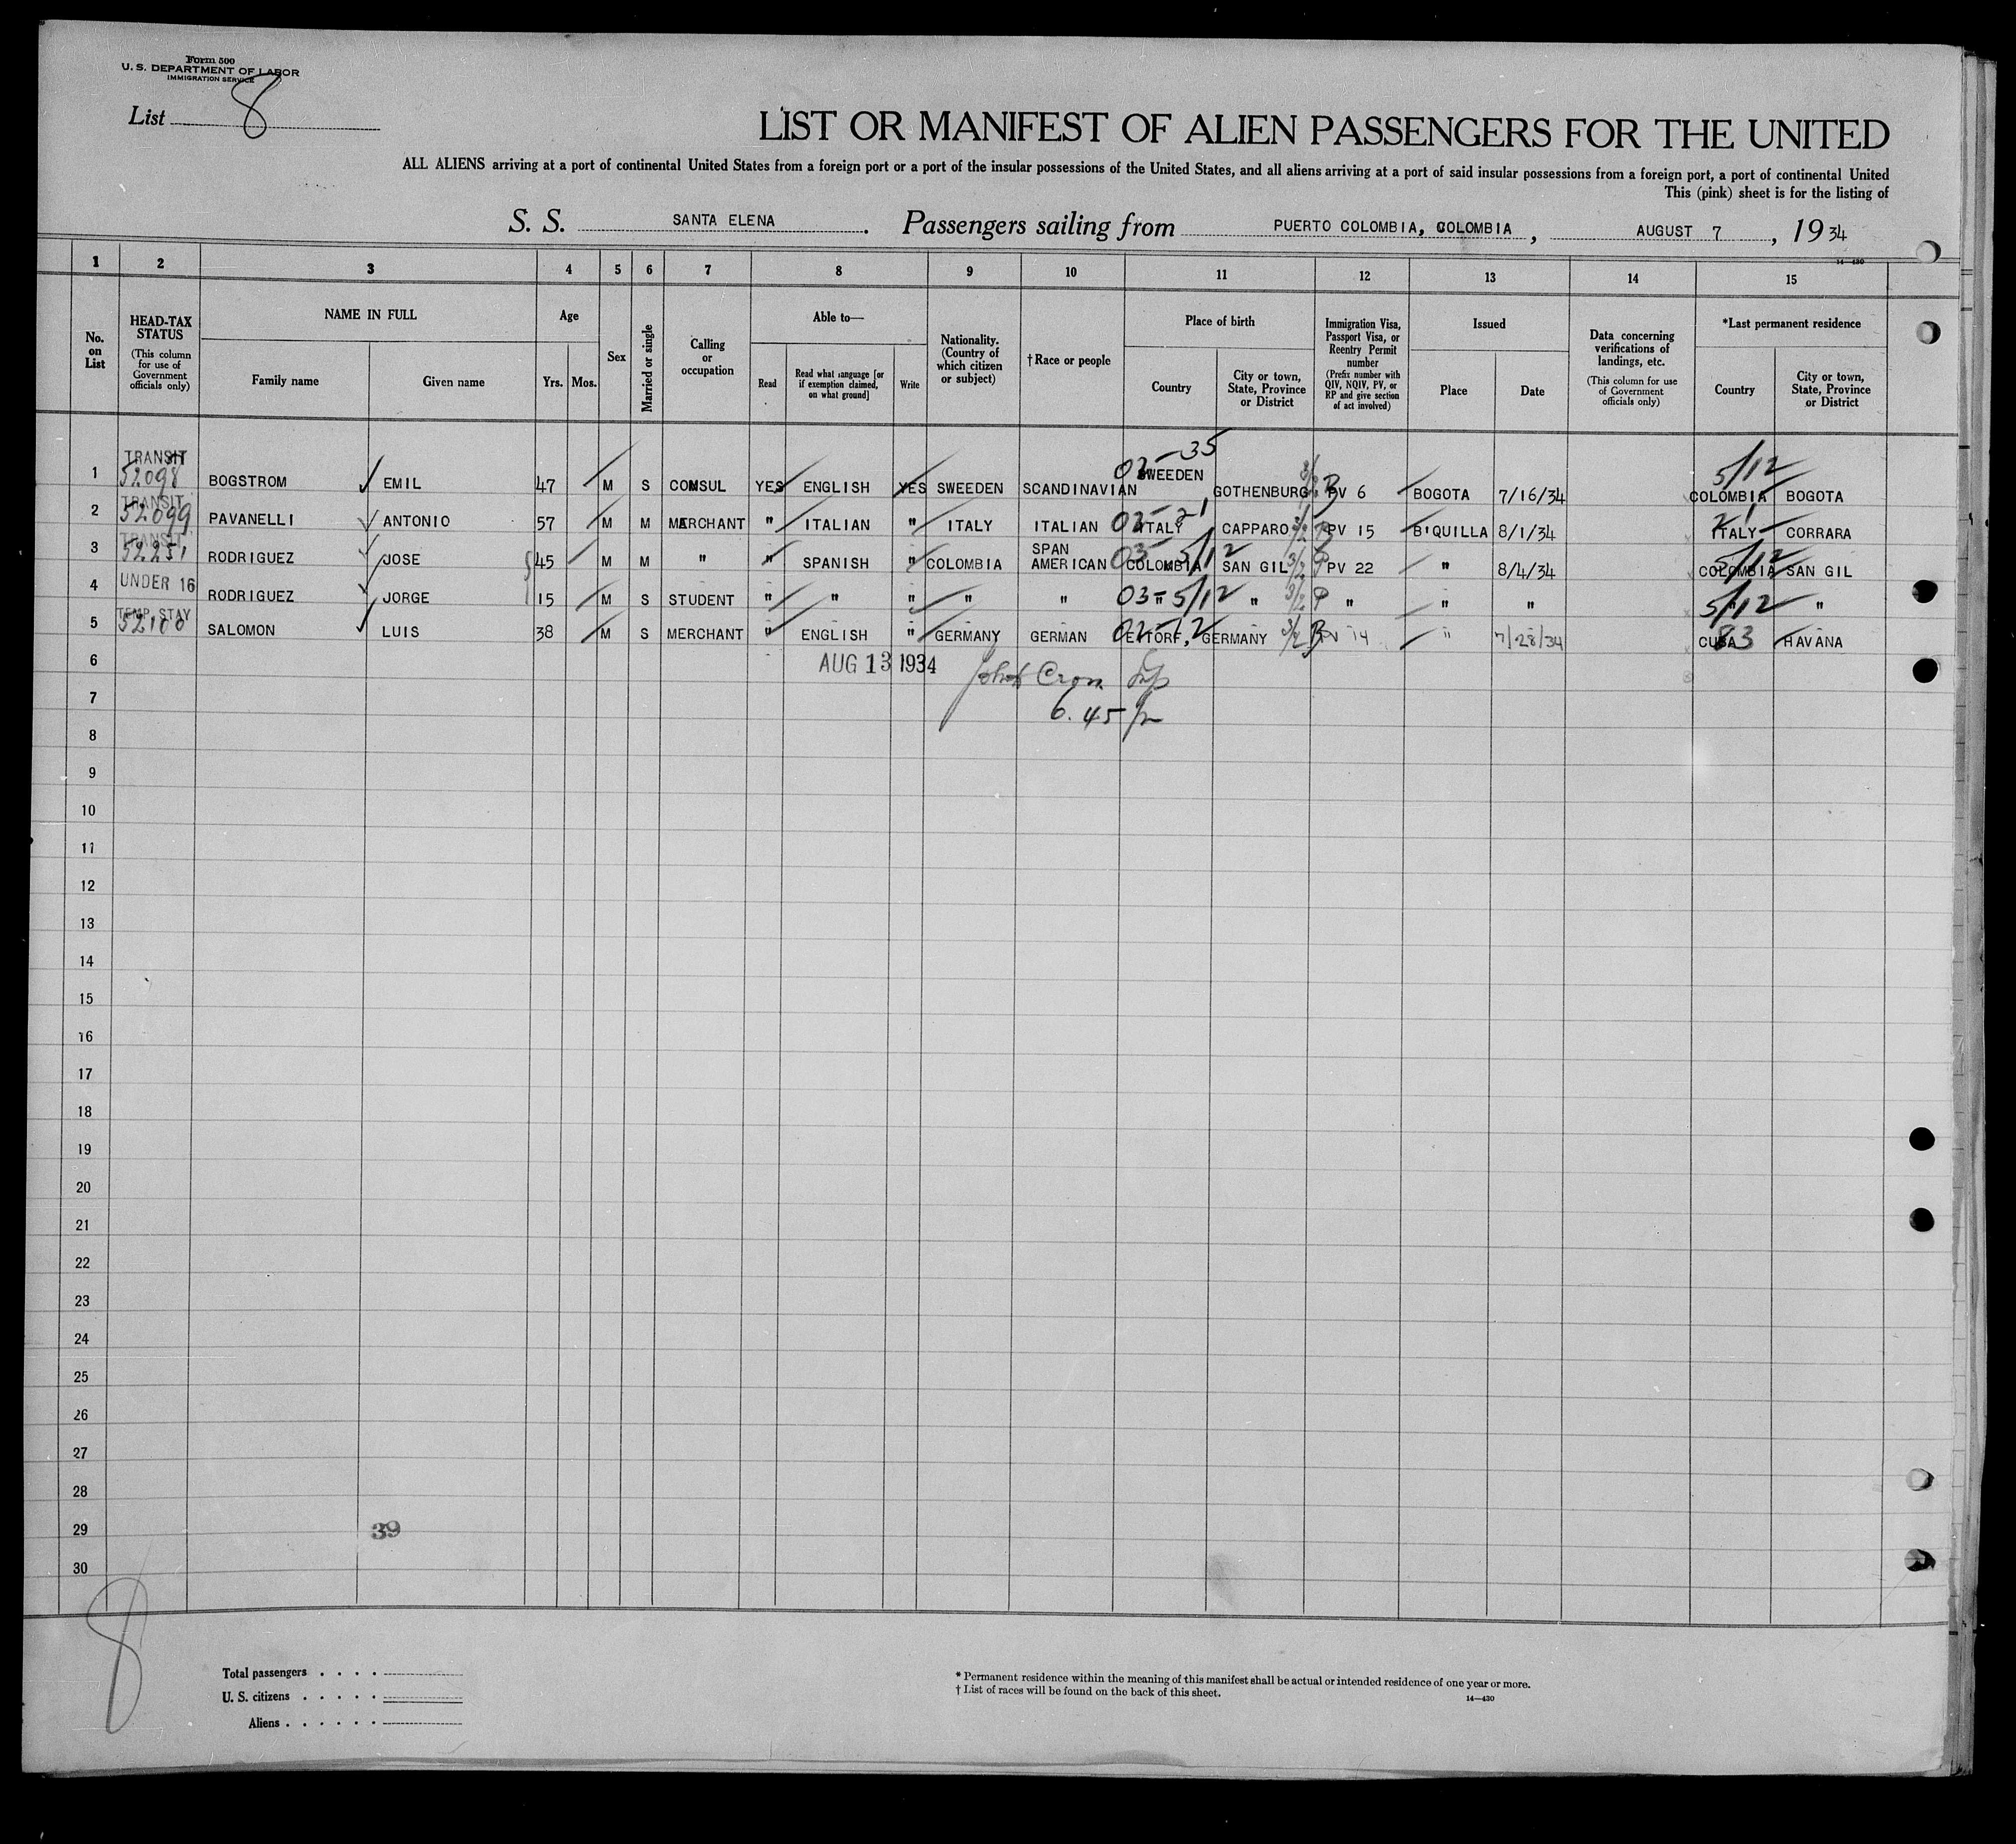 Form 500
U. S. DEPARTMENT OF LABOR
IMMIGRATION SERVICE
List 8
LIST OR MANIFEST OF ALIEN PASSENGERS FOR THE UNITED
ALL ALIENS arriving at a port of continental United States from a foreign port or a port of the insular possessions of the United States, and all aliens arriving at a port of said insular possessions from a foreign port, a port of continental United
This (pink) sheet is for the listing of
S. S. SANTA ELENA. Passengers sailing from PUERTO COLOMBIA, COLOMBIA, AUGUST 7, 1934
14—430
1 2 3 4 5 6 7 8 9 10 11 12 13 14 15
No. on List
HEAD-TAX STATUS (This column for use of Government officials only)
NAME IN FULL
Family name
Given name
Age
Yrs. Mos.
Sex
Married or single
Calling or occupation
Able to—
Read
Read what language [or if exemption claimed, on what ground]
Write
Nationality. (Country of which citizen or subject)
† Race or people
Place of birth
Country
City or town, State, Province or District
Immigration Visa, Passport Visa, or Reentry Permit number (Prefix number with QIV, NQIV, PV, or RP and give section of act involved)
Issued
Place
Date
Data concerning verifications of landings, etc. (This column for use of Government officials only)
*Last permanent residence
Country
City or town, State, Province or District
1 TRANSIT 52098 BOGSTROM EMIL 47 M S CONSUL YES ENGLISH YES SWEEDEN SCANDINAVIAN 02-35 SWEEDEN GOTHENBURG 3/2 PV 6 BOGOTA 7/16/34 5/12 COLOMBIA BOGOTA
2 TRANSIT 52099 PAVANELLI ANTONIO 57 M M MERCHANT " ITALIAN " ITALY ITALIAN 02-21 ITALY CAPPARO 3/2 PV 15 B'QUILLA 8/1/34 21 ITALY CORRARA
3 TRANSIT 52251 RODRIGUEZ JOSE 45 M M " " SPANISH " COLOMBIA SPAN AMERICAN 03-5/12 COLOMBIA SAN GIL 3/2 P PV 22 " 8/4/34 5/12 COLOMBIA SAN GIL
4 UNDER 16 RODRIGUEZ JORGE 15 M S STUDENT " " " " " 03-5/12 " " 3/2 P " " " 5/12 " "
5 TEMP STAY 52100 SALOMON LUIS 38 M S MERCHANT " ENGLISH " GERMANY GERMAN ETTORF, GERMANY 3/2 PV 14 " 7/28/34 83 CUBA HAVANA
6 AUG 13 1934 John Crom Insp
7 6.45 pm
8
9
10
11
12
13
14
15
16
17
18
19
20
21
22
23
24
25
26
27
28
29 39
30
8
Total passengers . . . .
U. S. citizens . . . . .
Aliens . . . . . .
* Permanent residence within the meaning of this manifest shall be actual or intended residence of one year or more.
† List of races will be found on the back of this sheet.
14—430